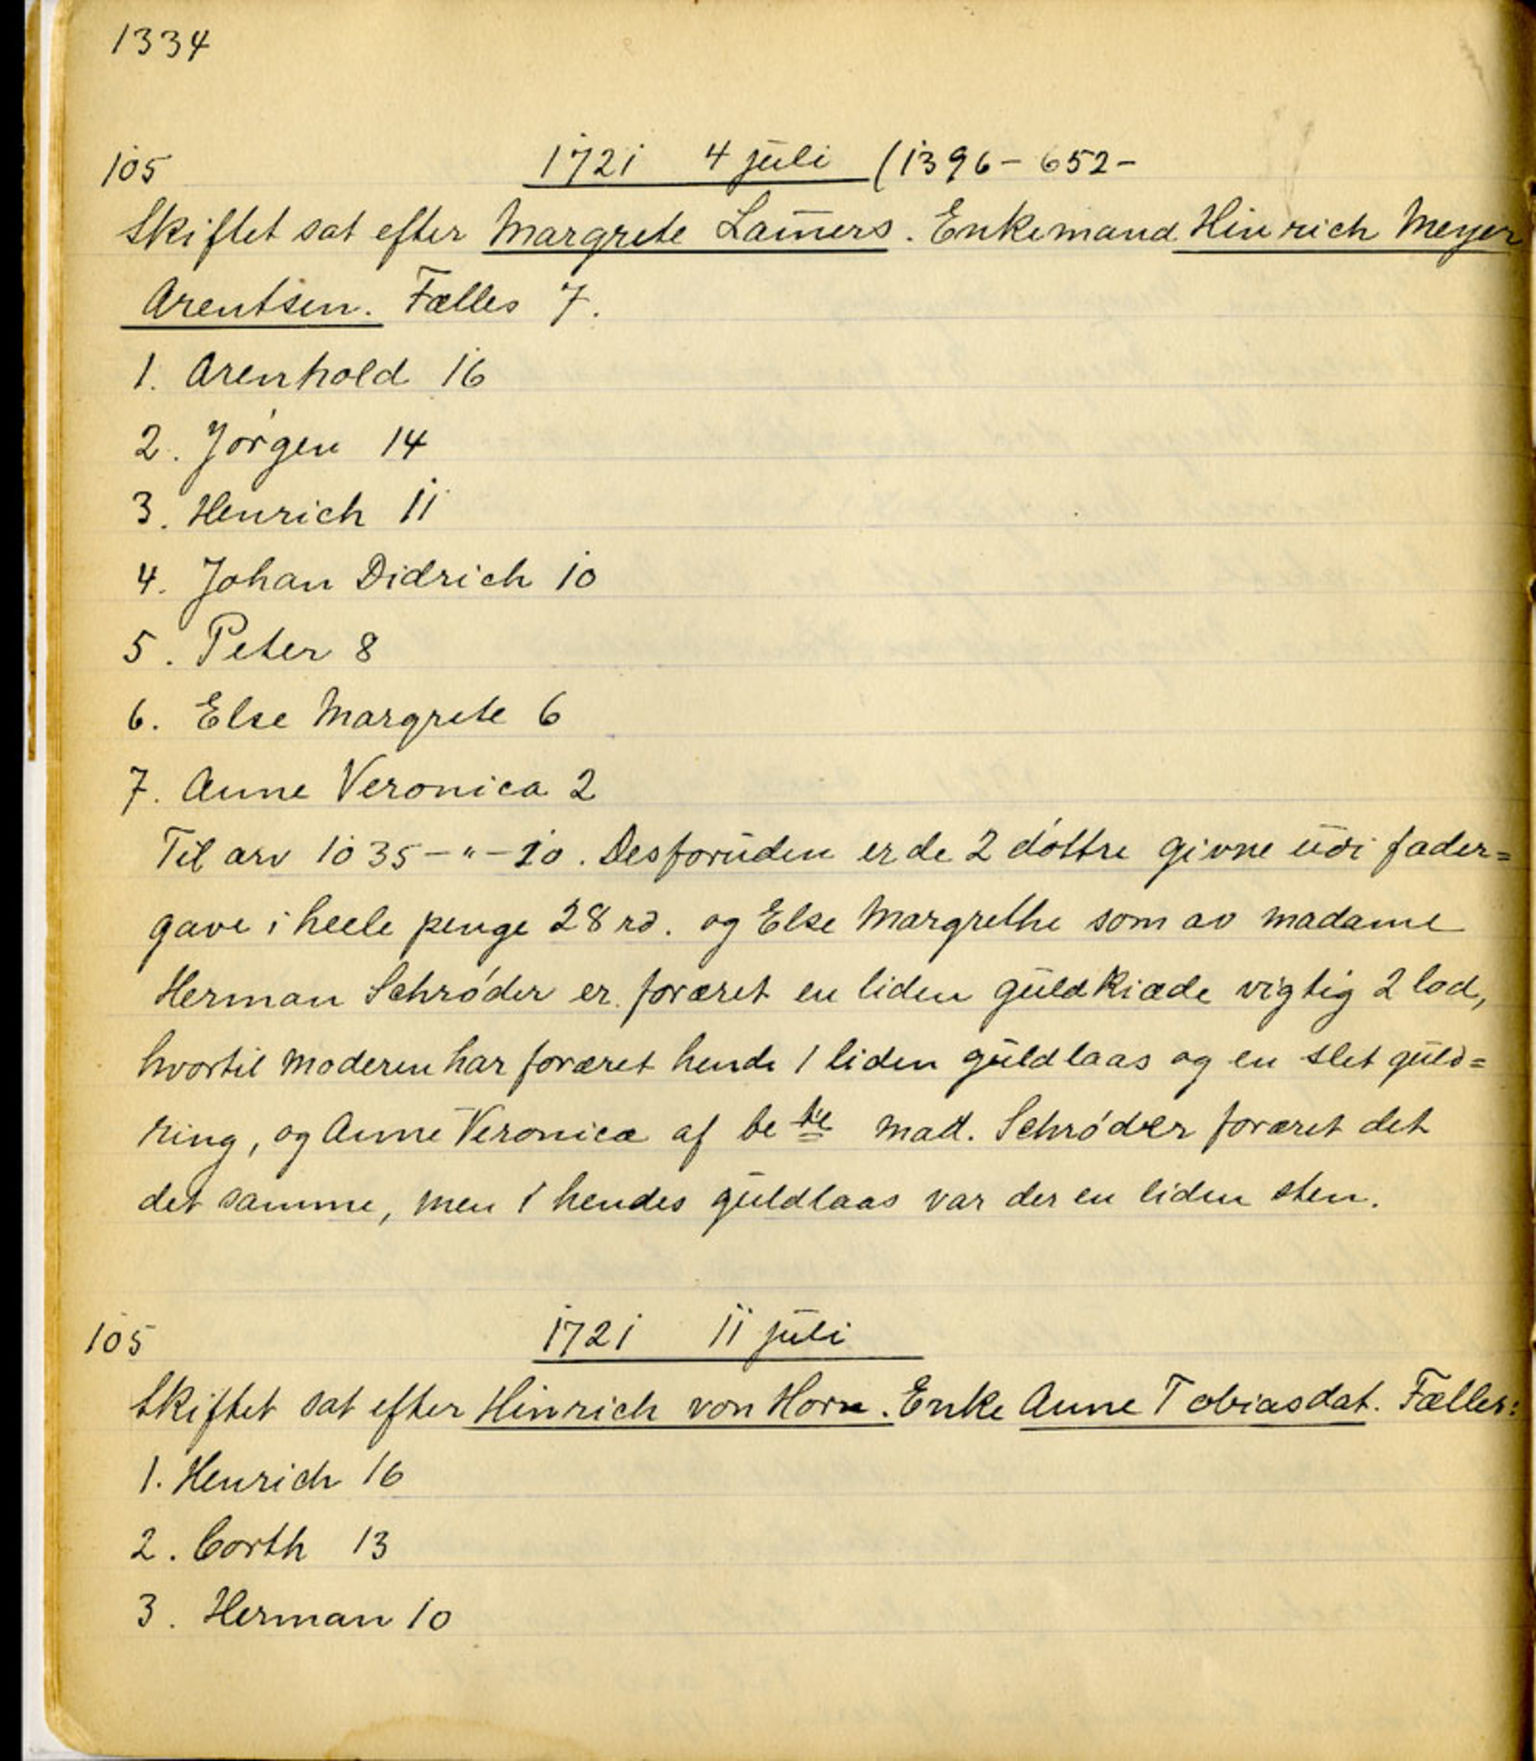 1334
105 1721 4 juli (1396-652-
Skiftet sat efter Margrete Lam̄ers. Enkemand Hinrich Meyer
Arentsen. Fælles 7.
1. Arenhold 16
2. Jørgen 14
3. Henrich 11
4. Johan Didrich 10
5. Peter 8
6. Else Margrete 6
7. Anne Veronica 2
Til arv 1035-"-10. Desforuden er de 2 døttre givne udi fader=
gave i heele penge 28 rd. og Else Margrethe som av madame
Herman Schrøder er foræret en liden guldkiæde vigtig 2 lod,
hvortil moderen har foræret hende 1 liden guldlaas og en slet guld=
ring, og Anne Veronica af bete mad. Schrøder foræret det
det samme, men i hendes guldlaas var der en liden sten.
105 1721 11 juli
Skiftet sat efter Hinrich von Horn. Enke Anne Tobiasdat. Fælles:
1. Henrich 16
2. Corth 13
3. Herman 10